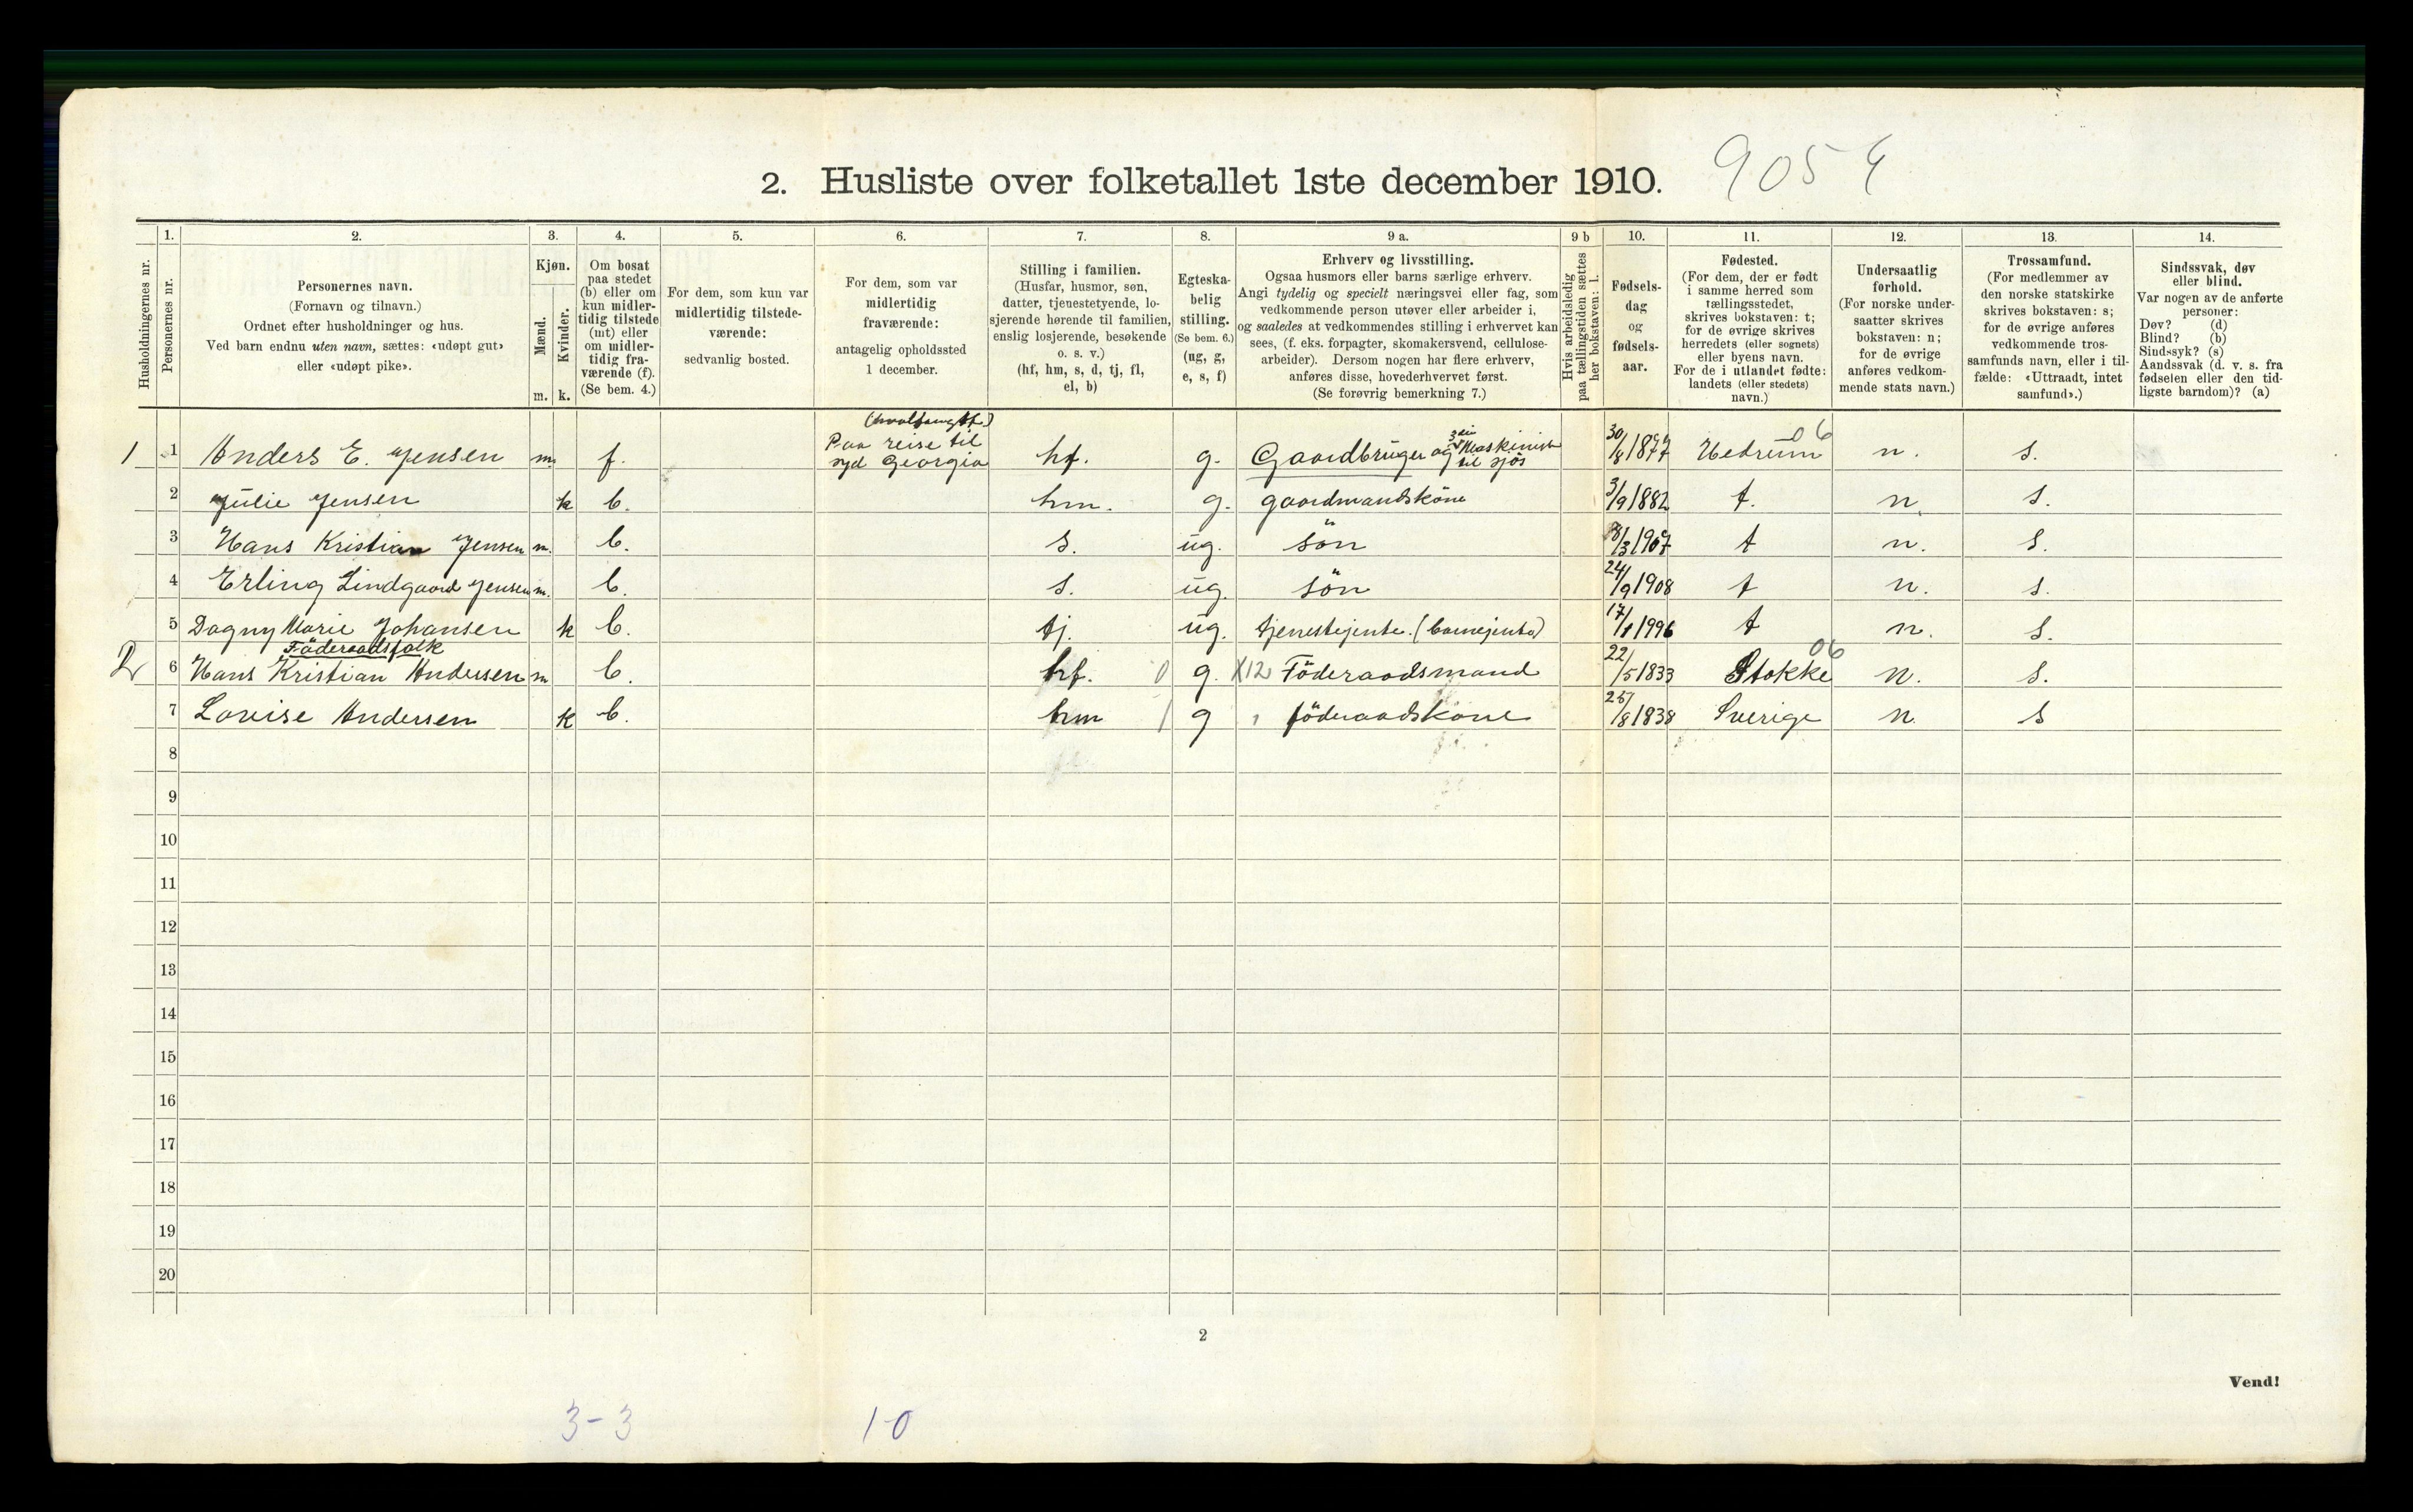 2. Husliste over folketallet 1ste december 1910.
9054
1. 2. 3. 4. 5. 6. 7. 8. 9 a. 9 b 10. 11. 12. 13. 14.
Husholdningernes nr.
Personernes nr.
Personernes navn.
(Fornavn og tilnavn.)
Ordnet efter husholdninger og hus.
Ved barn endnu uten navn, sættes: «udøpt gut»
eller «udøpt pike».
Kjøn.
Mænd.
Kvinder.
m. k.
Om bosat
paa stedet
(b) eller om
kun midler-
tidig tilstede
(mt) eller
om midler-
tidig fra-
værende (f).
(Se bem. 4.)
For dem, som kun var
midlertidig tilstede-
værende:
sedvanlig bosted.
For dem, som var
midlertidig
fraværende:
antagelig opholdssted
1 december.
Stilling i familien.
(Husfar, husmor, søn,
datter, tjenestetyende, lo-
sjerende hørende til familien,
enslig losjerende, besøkende
o. s. v.)
(hf, hm, s, d, tj, fl,
el, b)
Egteska-
belig
stilling.
(Se bem. 6.)
(ug, g,
e, s, f)
Erhverv og livsstilling.
Ogsaa husmors eller barns særlige erhverv.
Angi tydelig og specielt næringsvei eller fag, som
vedkommende person utøver eller arbeider i,
og saaledes at vedkommendes stilling i erhvervet kan
sees, (f. eks. forpagter, skomakersvend, cellulose-
arbeider). Dersom nogen har flere erhverv,
anføres disse, hovederhvervet først.
(Se forøvrig bemerkning 7.)
Hvis arbeidsledig
paa tællingstiden sættes
her bokstaven: l.
Fødsels-
dag
og
fødsels-
aar.
Fødested.
(For dem, der er født
i samme herred som
tællingsstedet,
skrives bokstaven: t;
for de øvrige skrives
herredets (eller sognets)
eller byens navn.
For de i utlandet fødte:
landets (eller stedets)
navn.)
Undersaatlig
forhold.
(For norske under-
saatter skrives
bokstaven: n;
for de øvrige
anføres vedkom-
mende stats navn.)
Trossamfund.
(For medlemmer av
den norske statskirke
skrives bokstaven: s;
for de øvrige anføres
vedkommende tros-
samfunds navn, eller i til-
fælde: «Uttraadt, intet
samfund».)
Sindssvak, døv
eller blind.
Var nogen av de anførte
personer:
Døv? (d)
Blind? (b)
Sindssyk? (s)
Aandssvak (d. v. s. fra
fødselen eller den tid-
ligste barndom)? (a)
1 1 Anders E. Jensen m. f. Paa reise til syd Georgia hf. g. Gaardbruger og Maskinist til sjös 30/8 1877 Hedrum 06 n. s.
2 Julie Jensen k b. hm. g. gaardmandskone 3/9 1882 t. n. s.
3 Hans Kristian Jensen m. b. s. ug. sön 18/3 1907 t n. s.
4 Erling Lindgaard Jensen m. b. s. ug. sön 24/9 1908 t n. s.
5 Dagny Marie Johansen k b. tj. ug. tjenestejente. (barnejente) 17/1 1996 t n. s.
Föderaadsfolk
2 6 Hans Kristian Andersen m b. hf. 0 g. X12 Föderaadsmand 22/5 1833 Stokke 06 n. s.
7 Lovise Andersen k b. hm 1 g föderaadskone 25/8 1838 Sverige n. s
8
9
10
11
12
13
14
15
16
17
18
19
20
2
Vend!
3-3 1-0